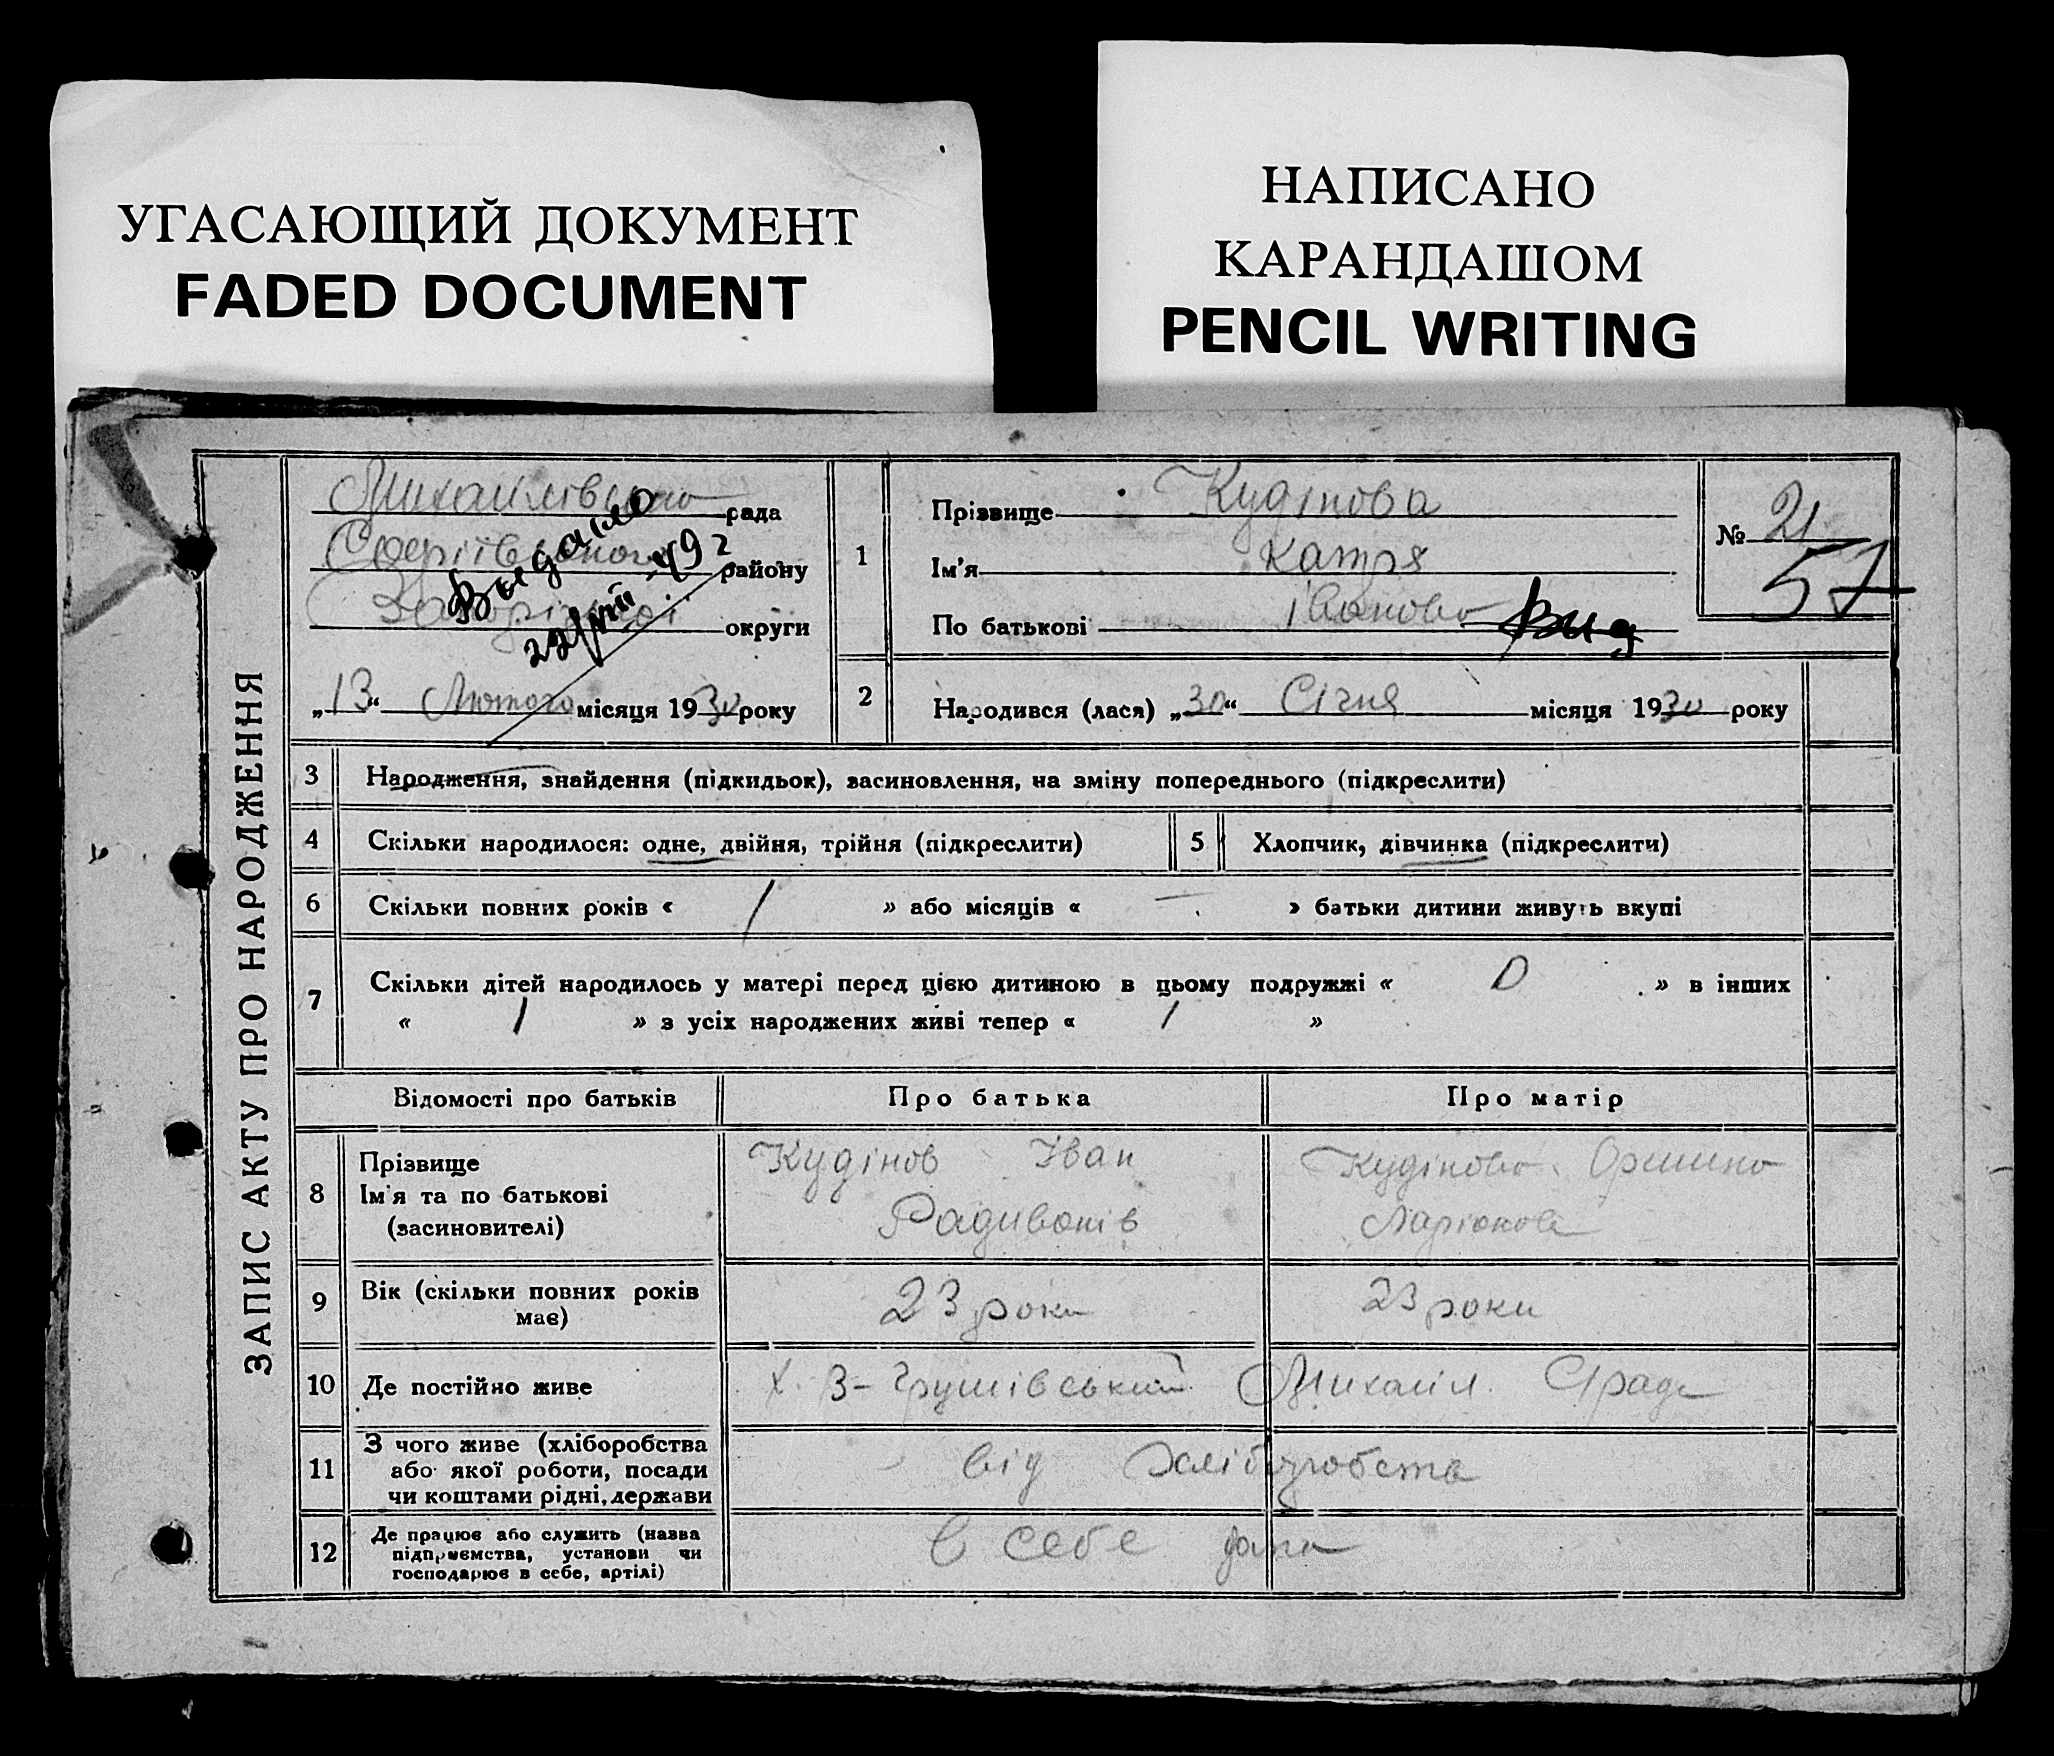 УГАСАЮЩИЙ ДОКУМЕНТ
FADED DOCUMENT
НАПИСАНО
КАРАНДАШОМ
PENCIL WRITING
ЗАПИС АКТУ ПРО НАРОДЖЕННЯ
рада
району
округи
Выдано
49 г
„13“ Лютого місяця 1930 року
1
Прізвище Кудінова
Ім'я Катря
По батькові Іванова
Выд
№ 21
57
2 Народився (лася) „30“ Січня місяця 1930 року
3 Народження, знайдення (підкидьок), засиновлення, на зміну попереднього (підкреслити)
4 Скільки народилося: одне, двійня, трійня (підкреслити) 5 Хлопчик, дівчинка (підкреслити)
6 Скільки повних років « 1 » або місяців « — » батьки дитини живуть вкупі
7 Скільки дітей народилось у матері перед цією дитиною в цьому подружжі « 0 » в інших
« 1 » з усіх народжених живі тепер « 1 »
Відомості про батьків Про батька Про матір
8 Прізвище
Ім'я та по батькові
(засиновителі)
Кудінов Іван
Радивонів
Кудінова Оришка
Ларіонова
9 Вік (скільки повних років
має)
23 роки
23 роки
10 Де постійно живе х. 3-Грушівський Михайл. С/рада
11 З чого живе (хліборобства
або якої роботи, посади
чи коштами рідні, держави
від хліборобства
12 Де працює або служить (назва
підприємства, установи чи
господарює в себе, артілі)
в себе дома